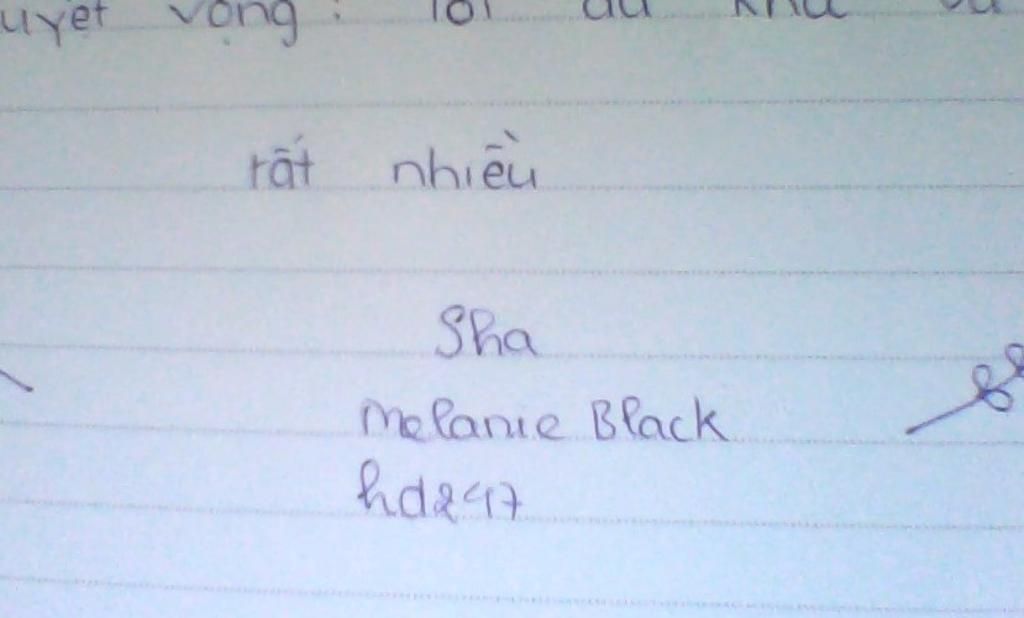 vọng:
rất nhiều
Sha
Melanie Black
hd247